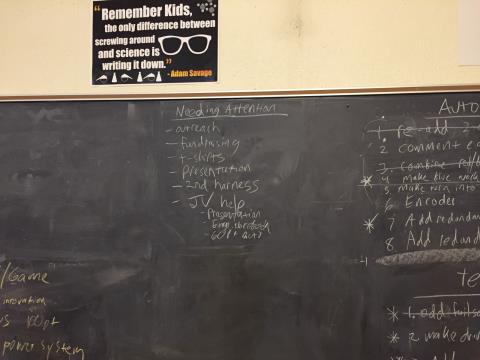 "Remember Kids,
the only difference between
screwing around
and science is
writing it down."
- Adam Savage
Needing Attention
- outreach
- fundraising
- t-shirts
- Presentation
- 2nd harness
- JV help
- Presentation
Auto
1. re-add
2 comment
3. combine
* 4 make blue work
* 5 make turn into
6 Encoders
* 7 Add redundan
8 Add redund
/Game
innovation
power system
Te
* 1. add
* 2 make